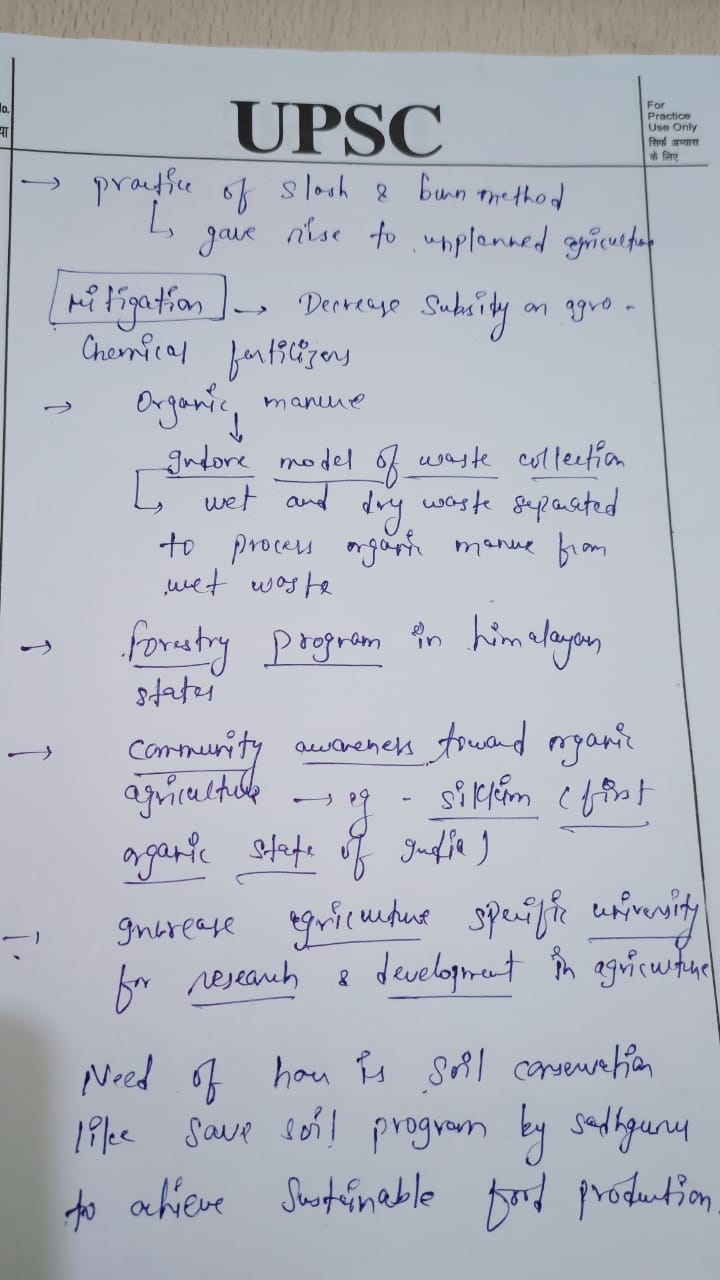 No.
UPSC
For
Practice
Use Only
सिर्फ अभ्यास
के लिए
→ practice of slash & burn method
↳ gave rise to unplanned agriculture
Mitigation → Decrease subsidy on agro-
chemical fertilizers
→ Organic manure
↓
Indore model of waste collection
↳ wet and dry waste separated
to process organic manure from
wet waste
→ forestry program in himalayan
states
→ community awareness toward organic
agriculture → eg - sikkim (first
organic state of India)
→ Increase agriculture specific university
for research & development in agriculture
Need of hour is soil conservation
like save soil program by sadhguru
to achieve sustainable food production.